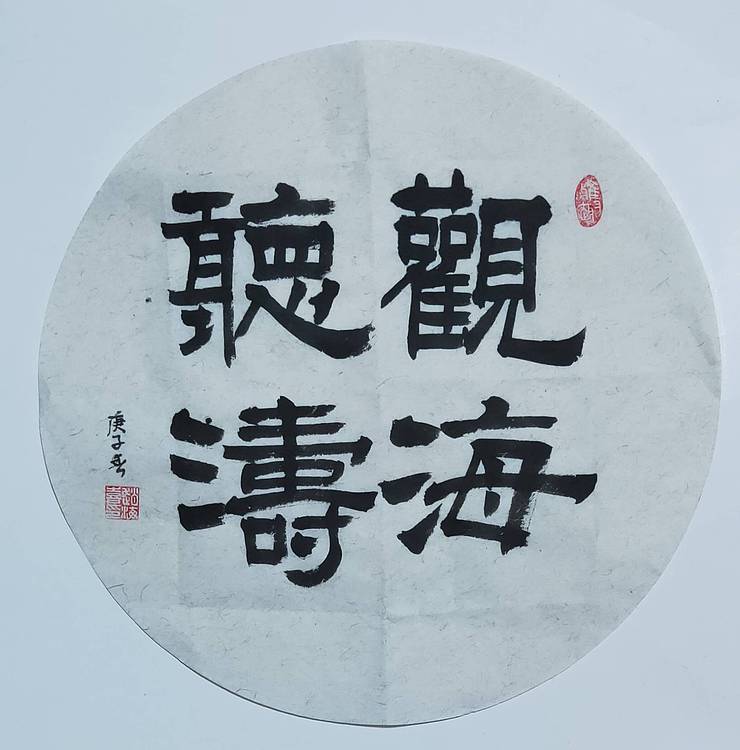 觀海
聽濤
庚子春